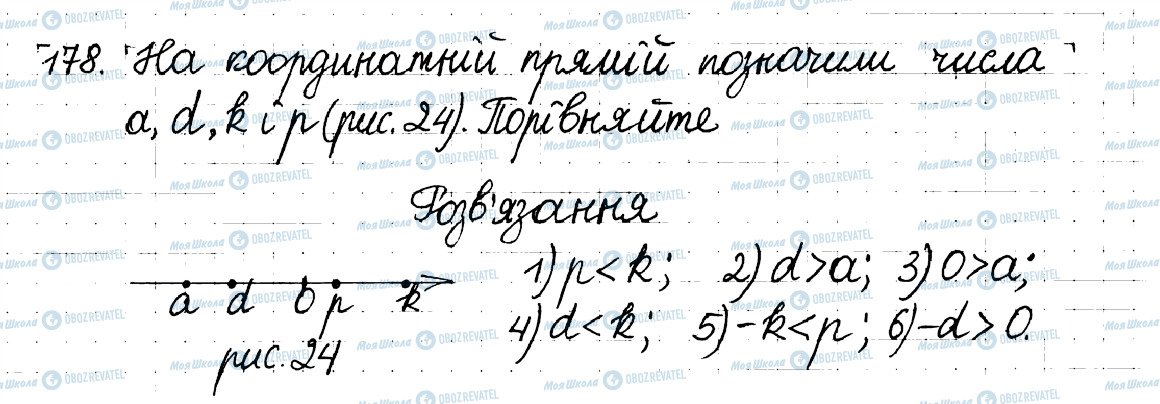 178. На координатній прямій позначили числа
a, d, k і p (рис. 24). Порівняйте
Розв'язання
1) p < k; 2) d > a; 3) 0 > a;
a d 0 p k
4) d < k; 5) -k < p; 6) -d > 0.
рис. 24